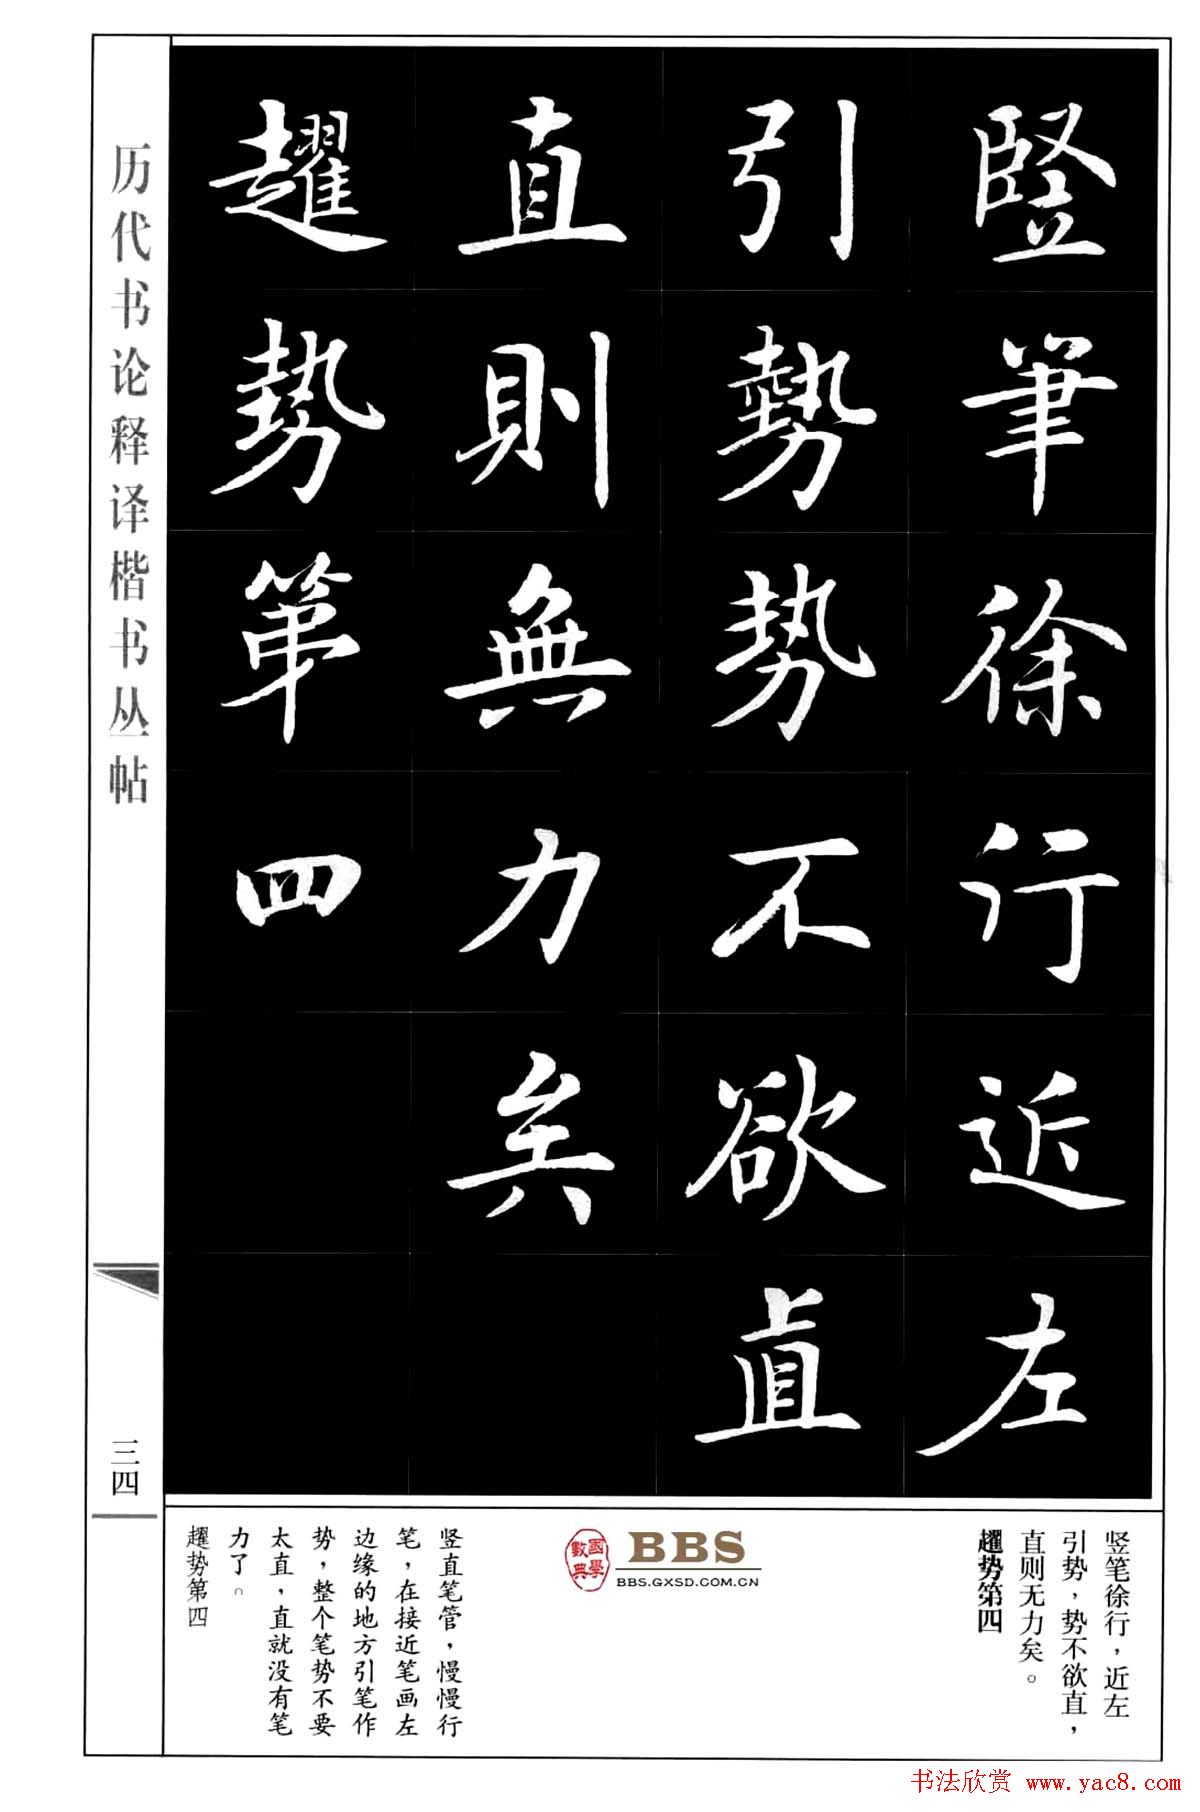 竪筆徐行近左
引勢势不欲直
直則無力矣
趯势第四
竖笔徐行，近左
引势，势不欲直，
直则无力矣。
趯势第四
BBS
BBS.GXSD.COM.CN
國學數典
竖直笔管，慢慢行
笔，在接近笔画左
边缘的地方引笔作
势，整个笔势不要
太直，直就没有笔
力了。
趯势第四
历代书论释译楷书丛帖
三四
书法欣赏 www.yac8.com